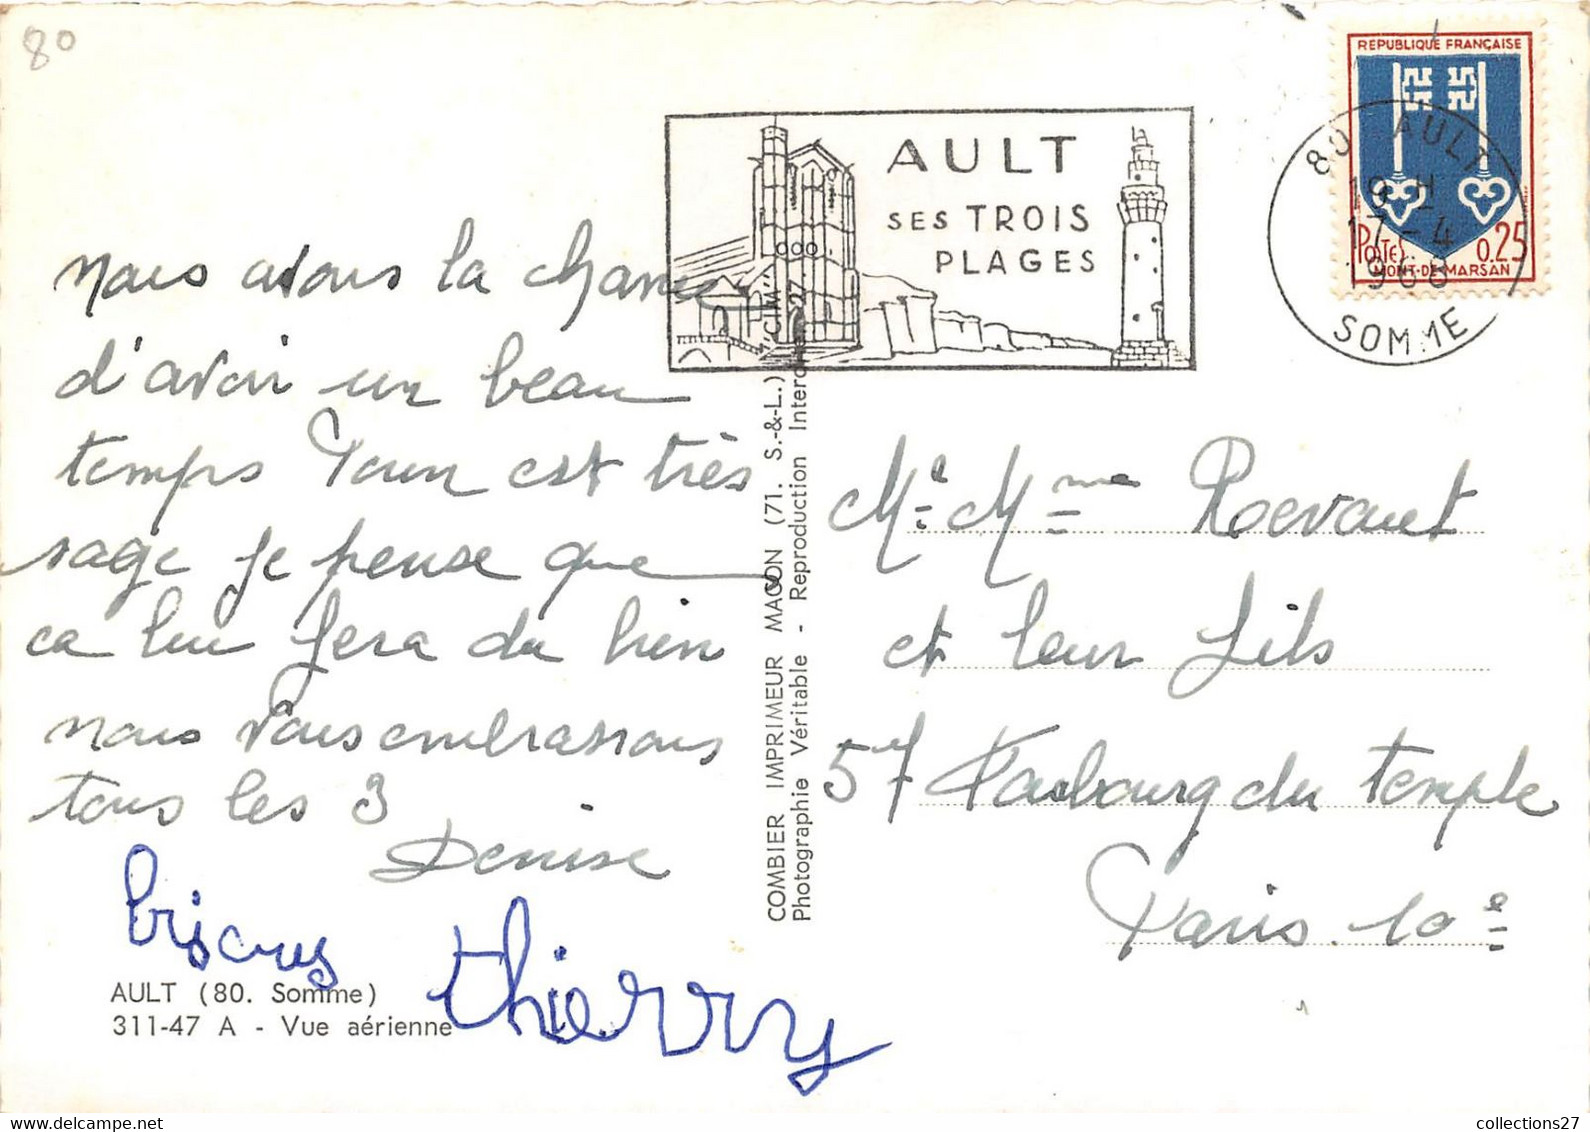 80
REPUBLIQUE FRANÇAISE
POSTES 0.25
MONT-DE-MARSAN
80 AULT
19 H
17-4
1968
SOMME
AULT
SES TROIS
PLAGES
nous avons la chance
d'avoir un beau
temps Youn est très
sage je pense que
ca lui fera du bien
nous vous embrassons
tous les 3
Denise
bisous
thierry
AULT (80. Somme)
311-47 A - Vue aérienne
COMBIER IMPRIMEUR MACON (71. S.-&-L.) "CIM"
Photographie Véritable - Reproduction Interdite 27
Mr Mme Roevaut
et leur fils
57 Faubourg du temple
Paris 10e
collections27